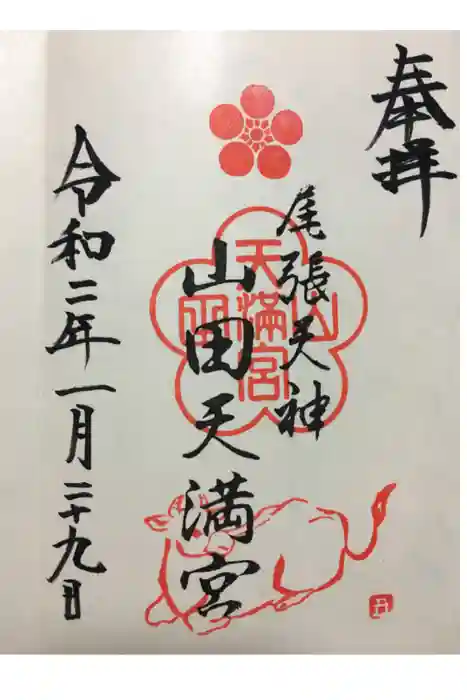 奉拝
尾張天神
山田天満宮
天満宮
山田
令和二年一月二十九日